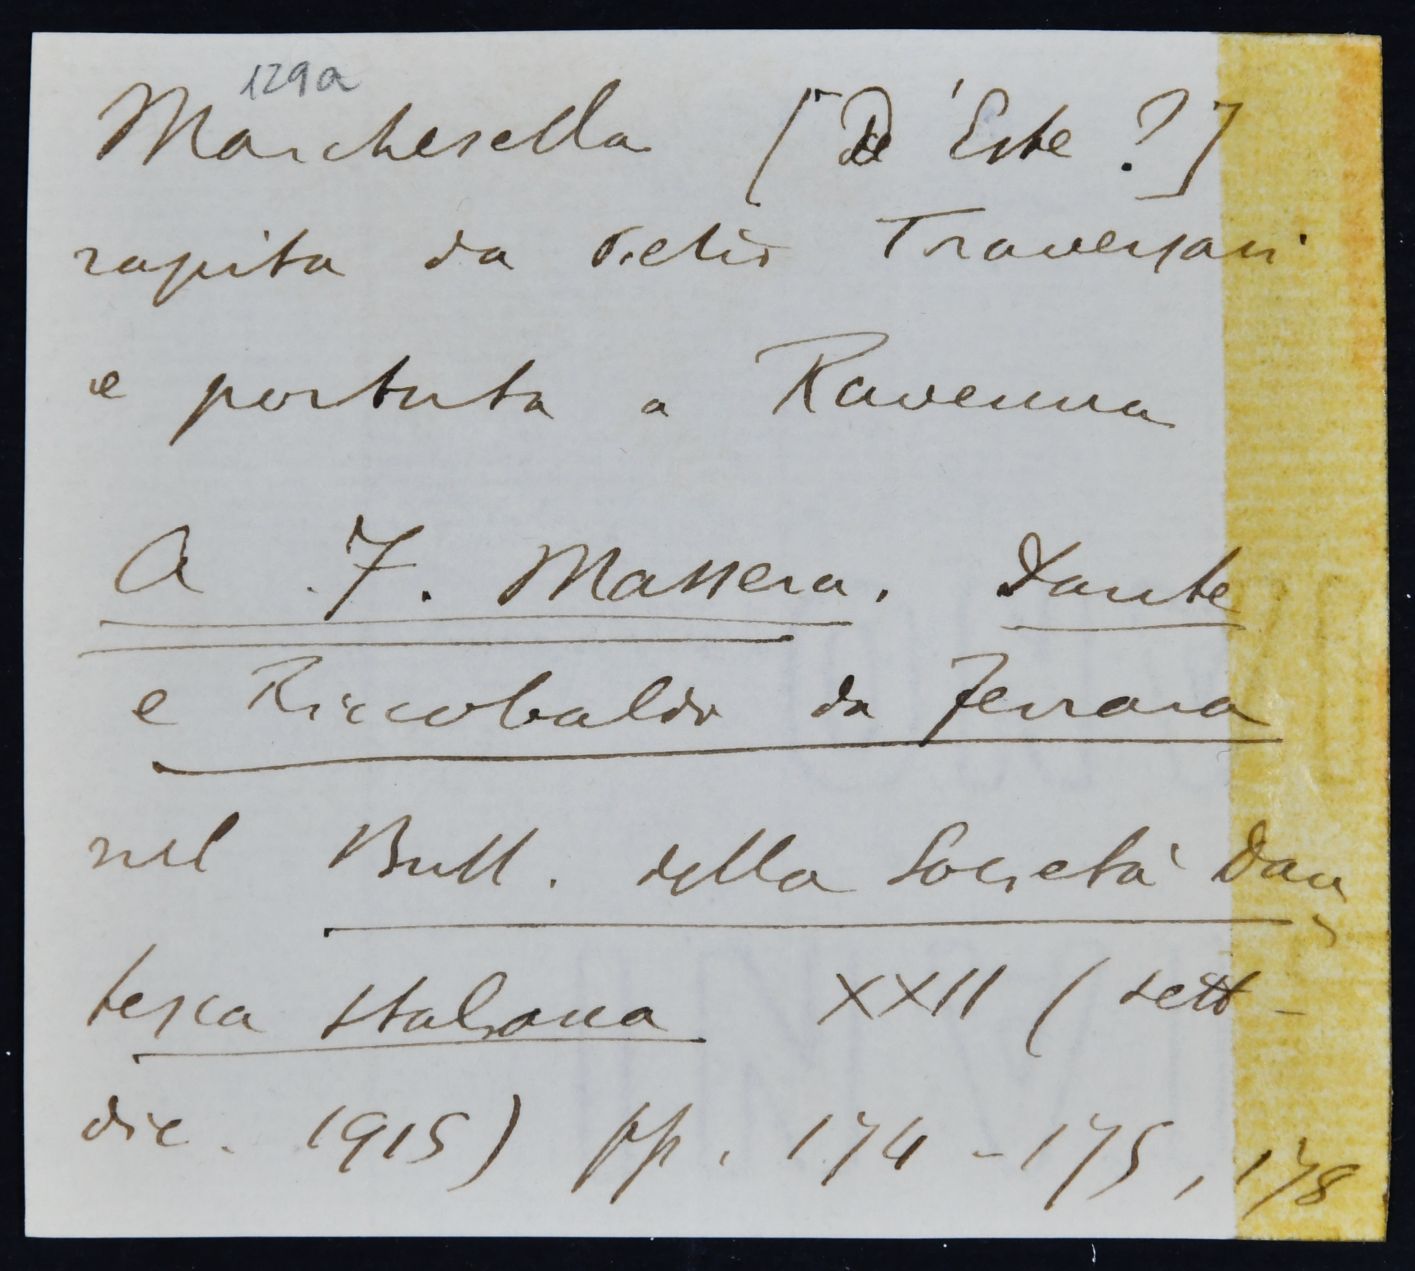 129a
Marchesella [D'Este?]
rapita da Pietro Traversari
e portata a Ravenna
A. F. Massera. Dante
e Riccobaldo da Ferrara
nel Bull. della Società Dan
tesca Italiana XXII (sett-
dic. 1915) pp. 174-175, 178